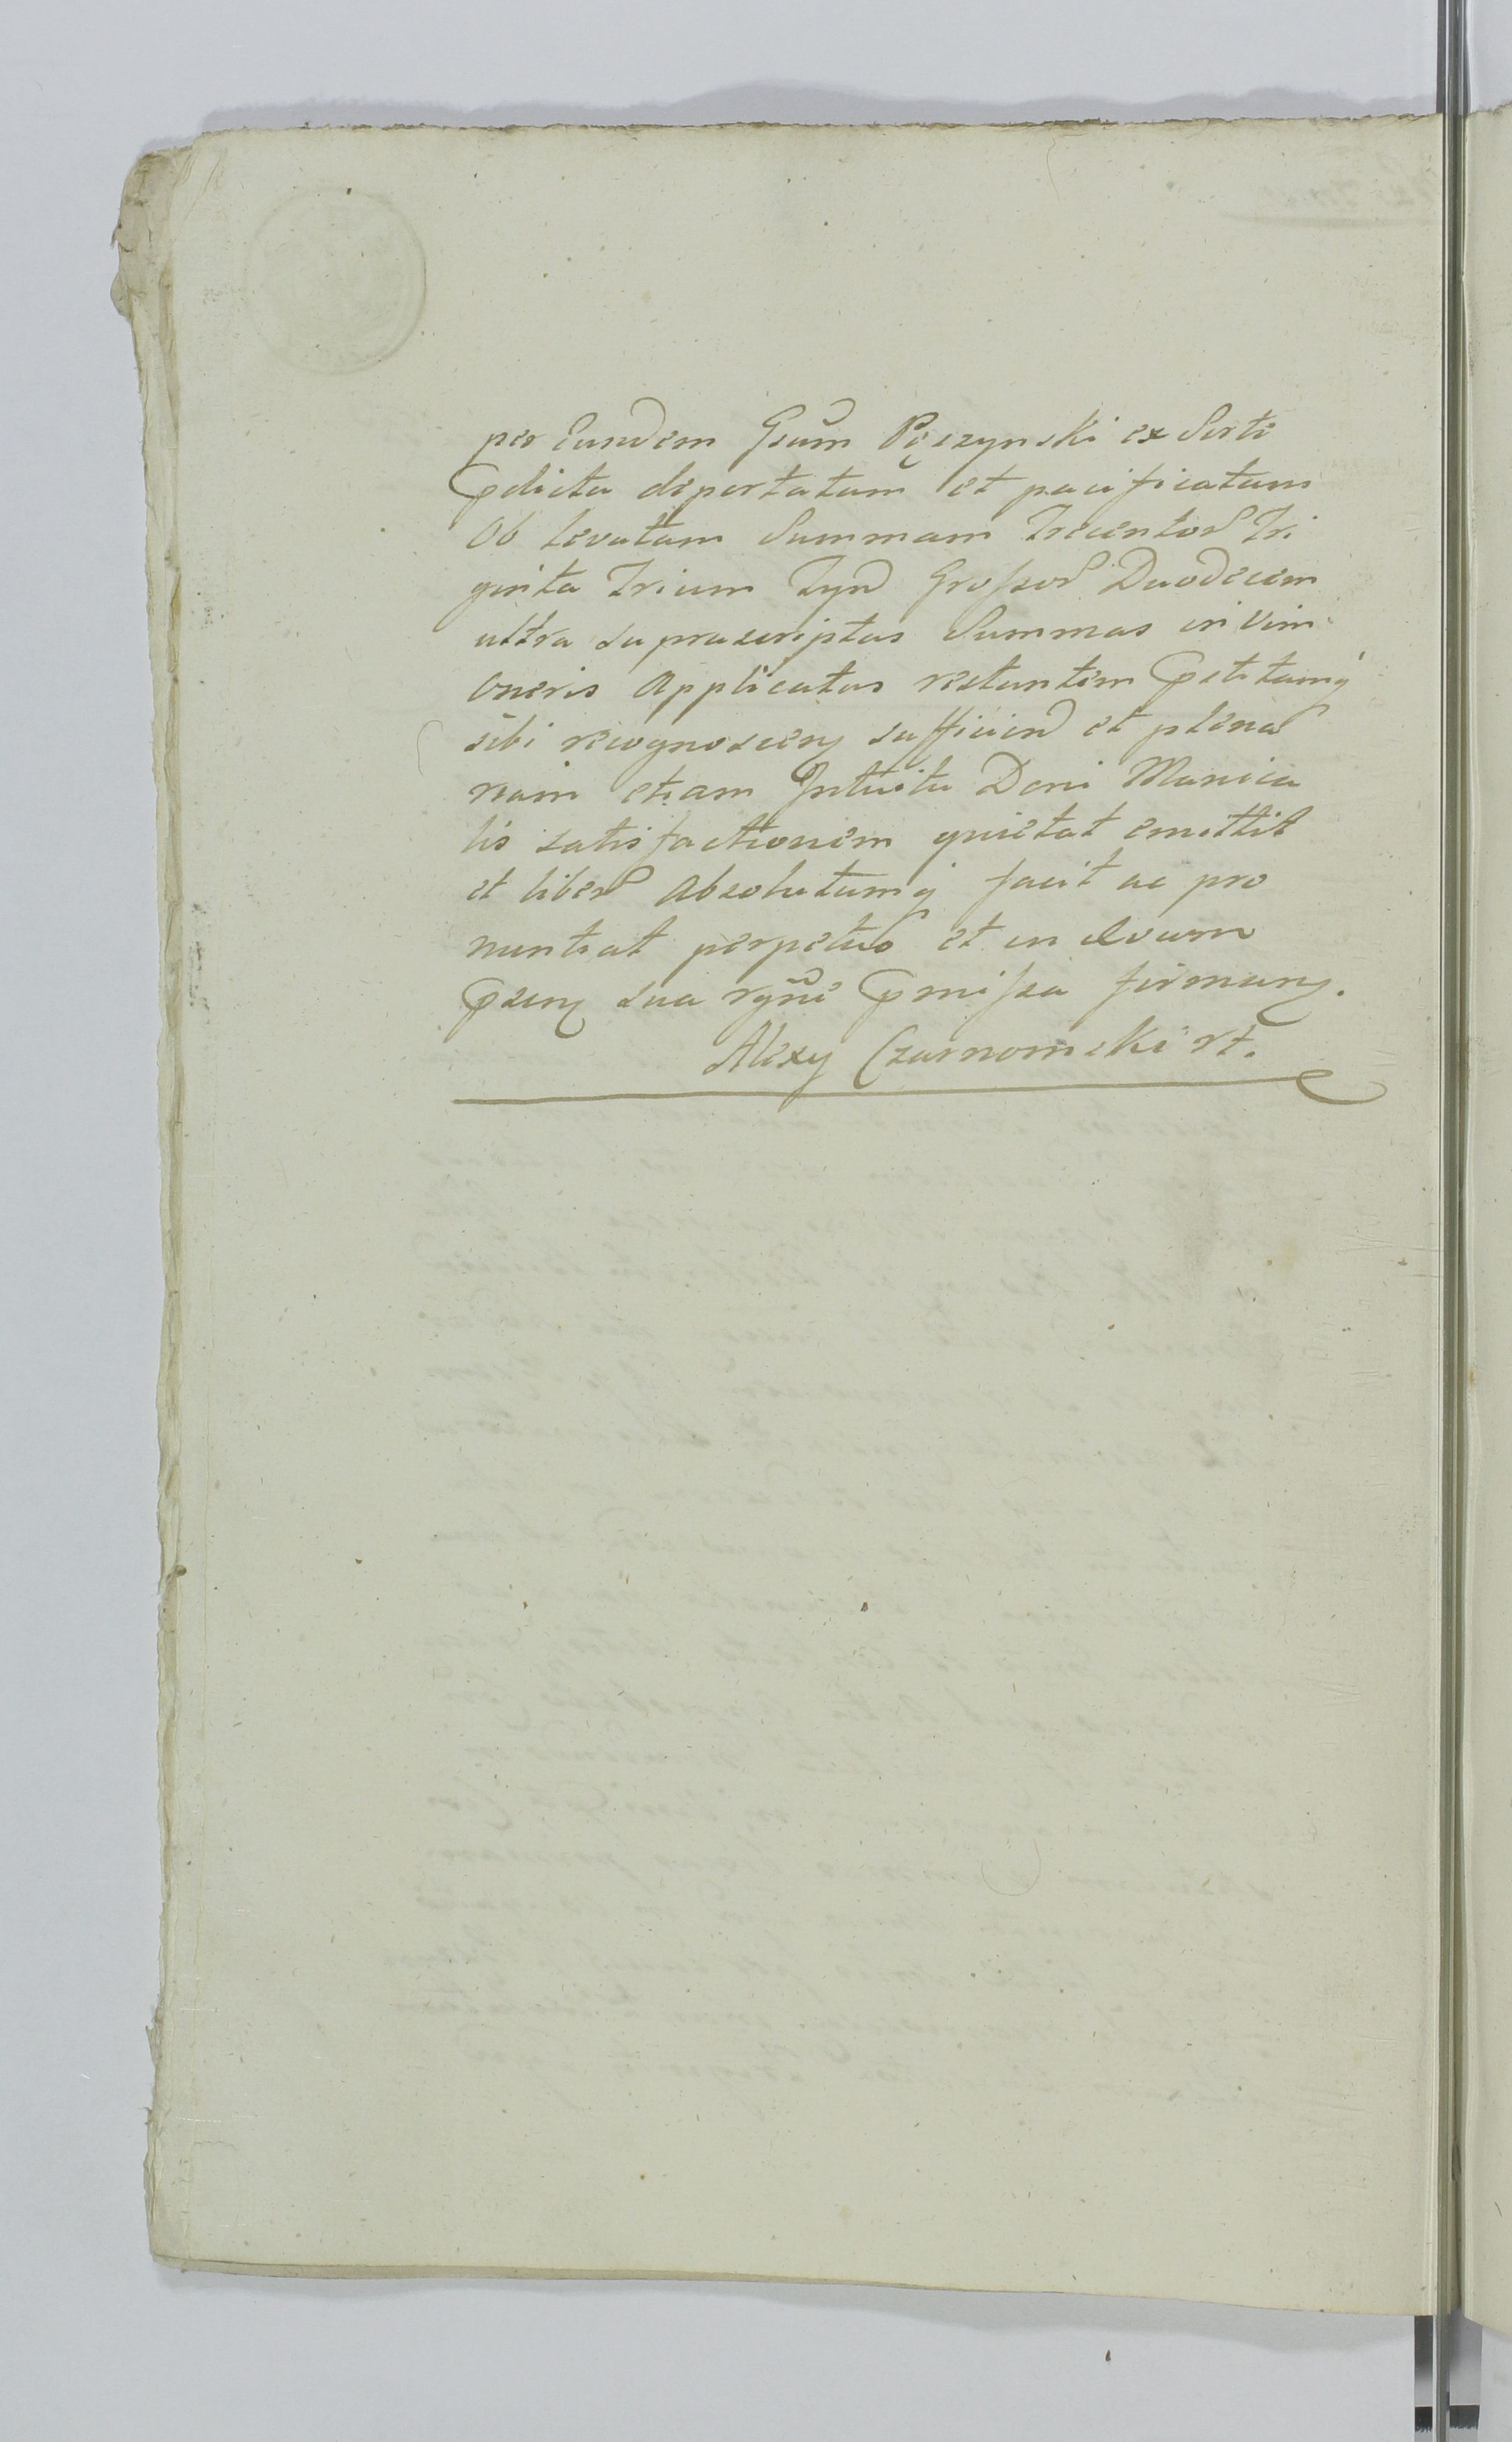 per Eundem Gsum Pęczynski ex Sorte
pdicta deportatam et pacificatam
Ob levatam Summam Trecentor Tri
ginta Trium Tyn Grossor Duodecem
ultra suprascriptas Summas in vim
Oneris Applicatas restantem petitamq
sibi recognoscens sufficien et plena
riam etiam Intuitu Doni Manica
lis satisfactionem quietat emittit
et liber Absolutumq facit ac pro
nuntiat perpetuo et in Evum
psens sua rgne pmissa firmans.
Alexy Czarnomski rt.